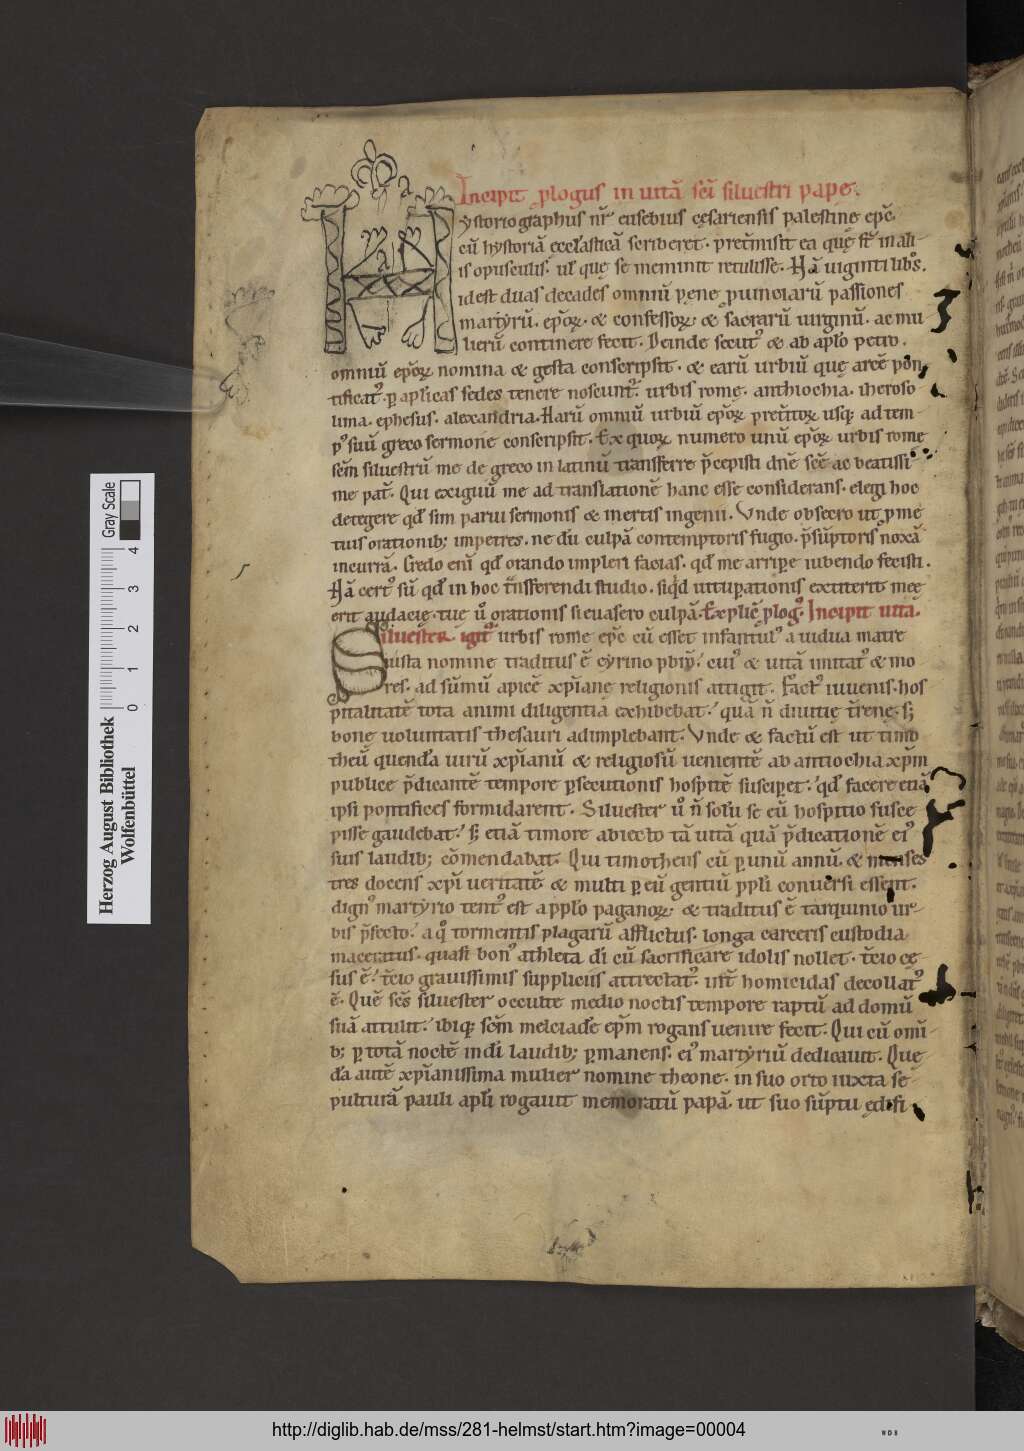 Incipit ꝓlogus in uitā scī siluestri pape.
Hystoriographus nr̄ eusebius cęsariensis palestinę epc̄.
cū hystoriā ecclasticā scriberet. pretmisit ea quę st̄ in ali-
is opusculis. ul' quę se meminit retulisse. Hā uiginti libos.
idest duas decades omniū pęne ꝓuinciarū passiones
martyrū. epōꝝ. & confessoꝝ. & sacrarū uirginū. ac mu
lierū continere fecit. Deinde secut' & ab aplo petro.
omniū epōꝝ nomina & gesta conscripsit. & earū urbiū quę arcē pon
tificat'. ꝑ aplicas sedes tenere noscunt'. urbis romę. anthiochia. iheroso
lima. ephesus. alexandria. Harū omniū urbiū epōꝝ pretitoꝝ usq; ad tem-
p' suū greco sermone conscripsit. Ex quoꝝ numero unū epōꝝ urbis rome
scm̄ siluestrū me de greco in latinū transferre p̄cepisti dnē scē ac beatissi
me pat̄. Qui exiguū me ad translationē hanc esse considerans. elegi hoc
detegere qd' sim parui sermonis & inertis ingenii. Vnde obsecro ut ꝓ me
tuis orationib; impetres. ne dū culpā contemptoris fugio. p̄sūptoris noxā
incurrā. Credo enī qd' orando impleri facias. qd' me arripe iubendo fecisti.
Hā cert' sū qd' in hoc t̄nsferendi studio. siqd uitupationis extiterit meę
erit audacię. tuę u° orationis si euasero culpā. Explic̄ ꝓlog'. Incipit uita.
Siluester. igit' urbis rome epc̄ cū esset infantul' a uidua matre
iusta nomine traditus ē cyrino pbr̄o. cui' & uitā imitat' & mo
res. ad sūmū apicē xp̄ianę religionis attigit. Fact' iuuenis. hos
pitalitatē tota animi diligentia exhibebat. quā n̄ diuitię t̄renę. s;
bonę uoluntatis thesauri adimplebant. Vnde & factū est ut timo
theū quenda uirū xp̄ianū & religiosū uenientē ab antiochia xp̄m
publice p̄dicantē tempore ꝑsecutionis hospitē susciperet. qd' facere etiā
ipsi pontifices formidarent. Siluester u° n̄ solū se eū hospitio susce
pisse gaudebat. s; etiā timore abiecto tā uitā quā p̄dicationē ei'
suis laudib; cōmendabat. Qui timotheus cū ꝑ unū annū. & menses
tres docens xp̄i ueritatē & multi ꝑ eū gentiū ppli conuersi essent.
dign' martyrio tent' est a pplo paganoꝝ. & traditus ē tarquinio ur-
bis p̄fecto. a q° tormentis plagarū afflictus. longa carceris custodia
maceratus. quasi bon' athleta di cū sacrificare idolis nollet. t̄cio ce
sus ē. t̄cio grauissimis suppliciis attrectat'. int̄ homicidas decollat'
ē. Quē scs̄ siluester occulte medio noctis tempore raptū ad domū
suā attulit. ibiq; scm̄ melciade epm̄ rogans uenire fecit. Qui cū omī-
b; ꝑ totā noctē in di laudib; ꝑmanens. ei' martyriū dedicauit. Quę
da autē xp̄ianissima mulier nomine theone. in suo orto iuxta se-
pulturā pauli apli rogauit memoratū papā. ut suo sūptu ędifi
5
Herzog August Bibliothek
Wolfenbüttel
0 1 2 3 4
Gray Scale
http://diglib.hab.de/mss/281-helmst/start.htm?image=00004